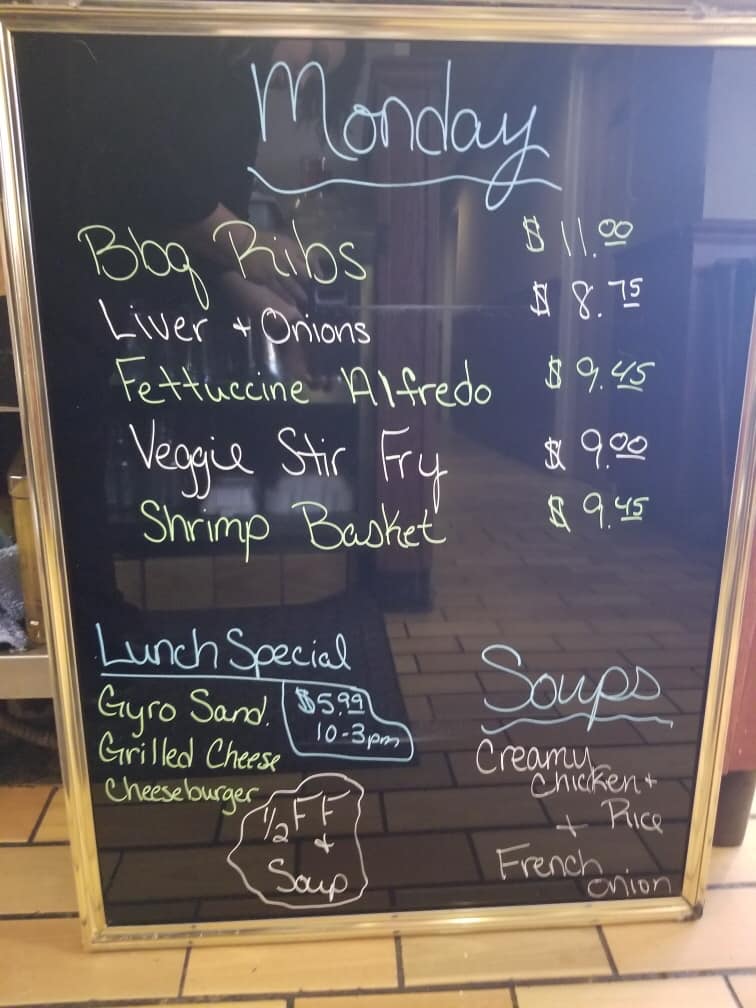 Monday
Bbq Ribs $11.00
Liver + Onions $8.75
Fettuccine Alfredo $9.45
Veggie Stir Fry $9.00
Shrimp Basket $9.45
Lunch Special
Gyro Sand.
Grilled Cheese
Cheeseburger
$5.99
10-3pm
1/2 FF
+
Soup
Soups
Creamy
Chicken +
+ Rice
French
onion